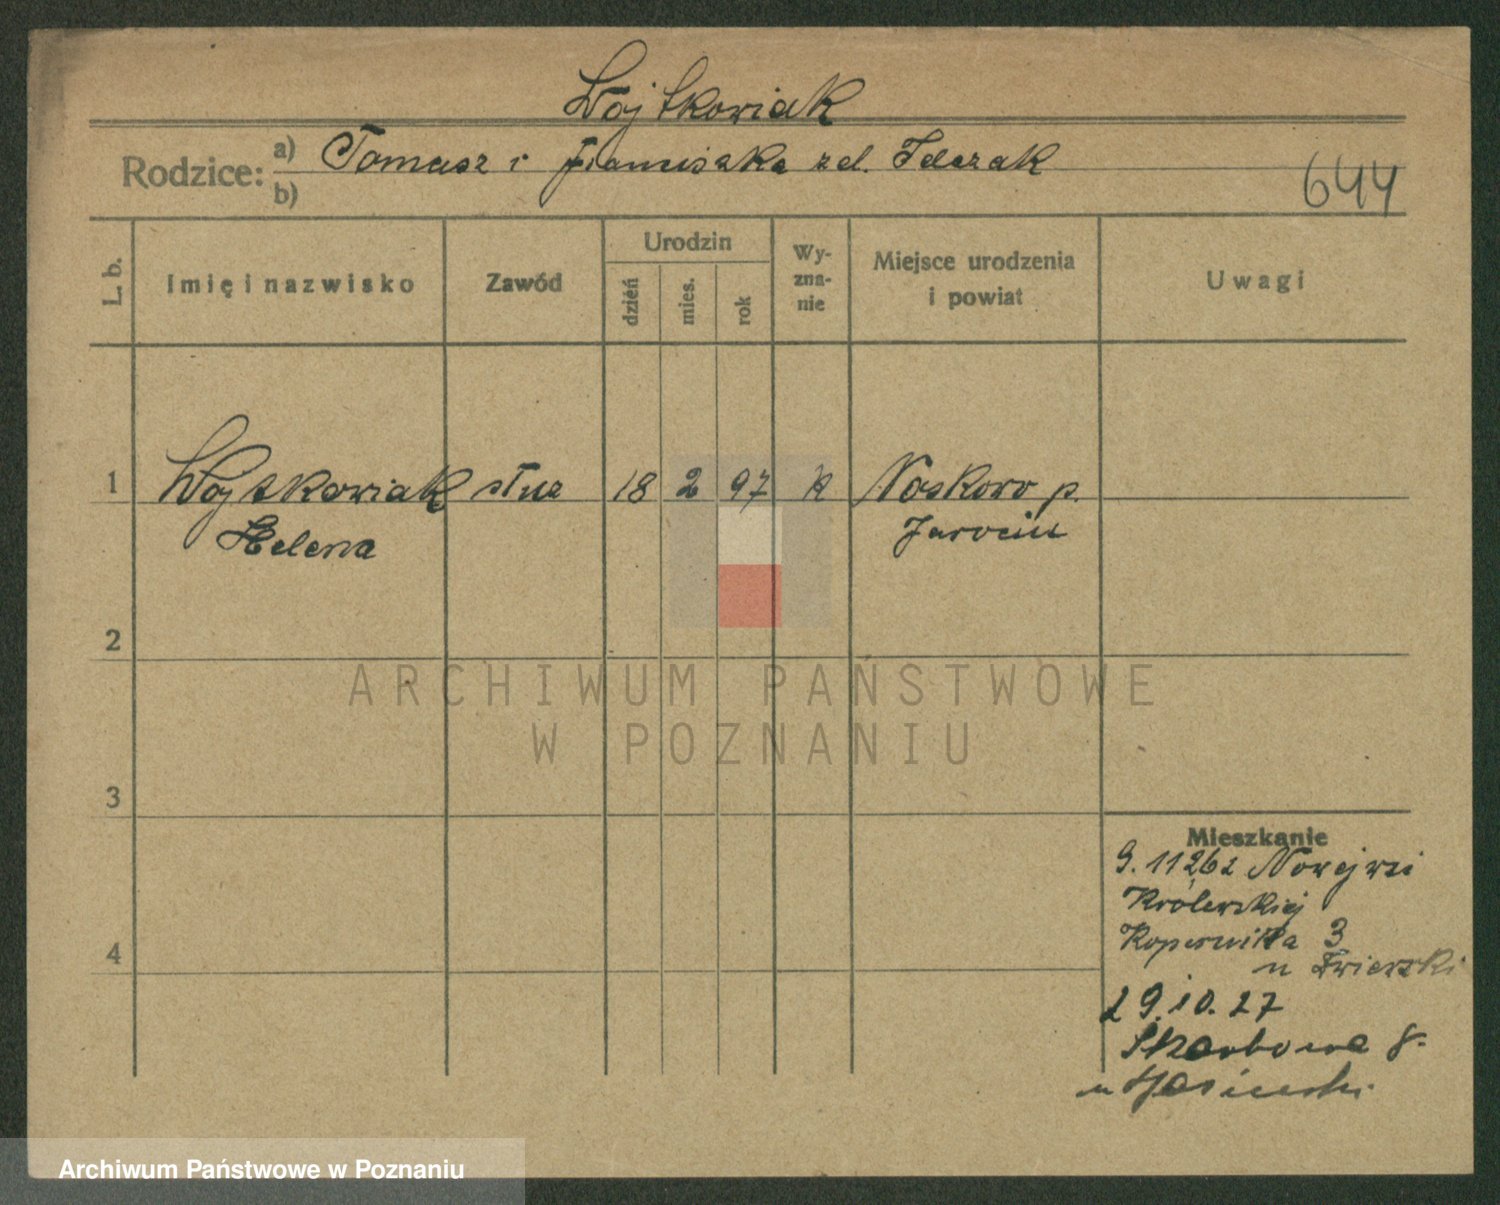 Wojtkowiak
Rodzice: a) Tomasz i Franciszka zd.
b)
644
L. b. Imię i nazwisko Zawód Urodzin dzień mies. rok Wy-zna-nie Miejsce urodzenia i powiat Uwagi
1 Wojtkowiak służ 18 2 97 k Noskowo p.
Helena Jarocin
2
3
4
Mieszkanie
9. 11 26 z Nowej wsi
Królewskiej
Kopernika 3
u
29.10.27
Skarbowa 8.
u
ARCHIWUM PAŃSTWOWE
W POZNANIU
Archiwum Państwowe w Poznaniu